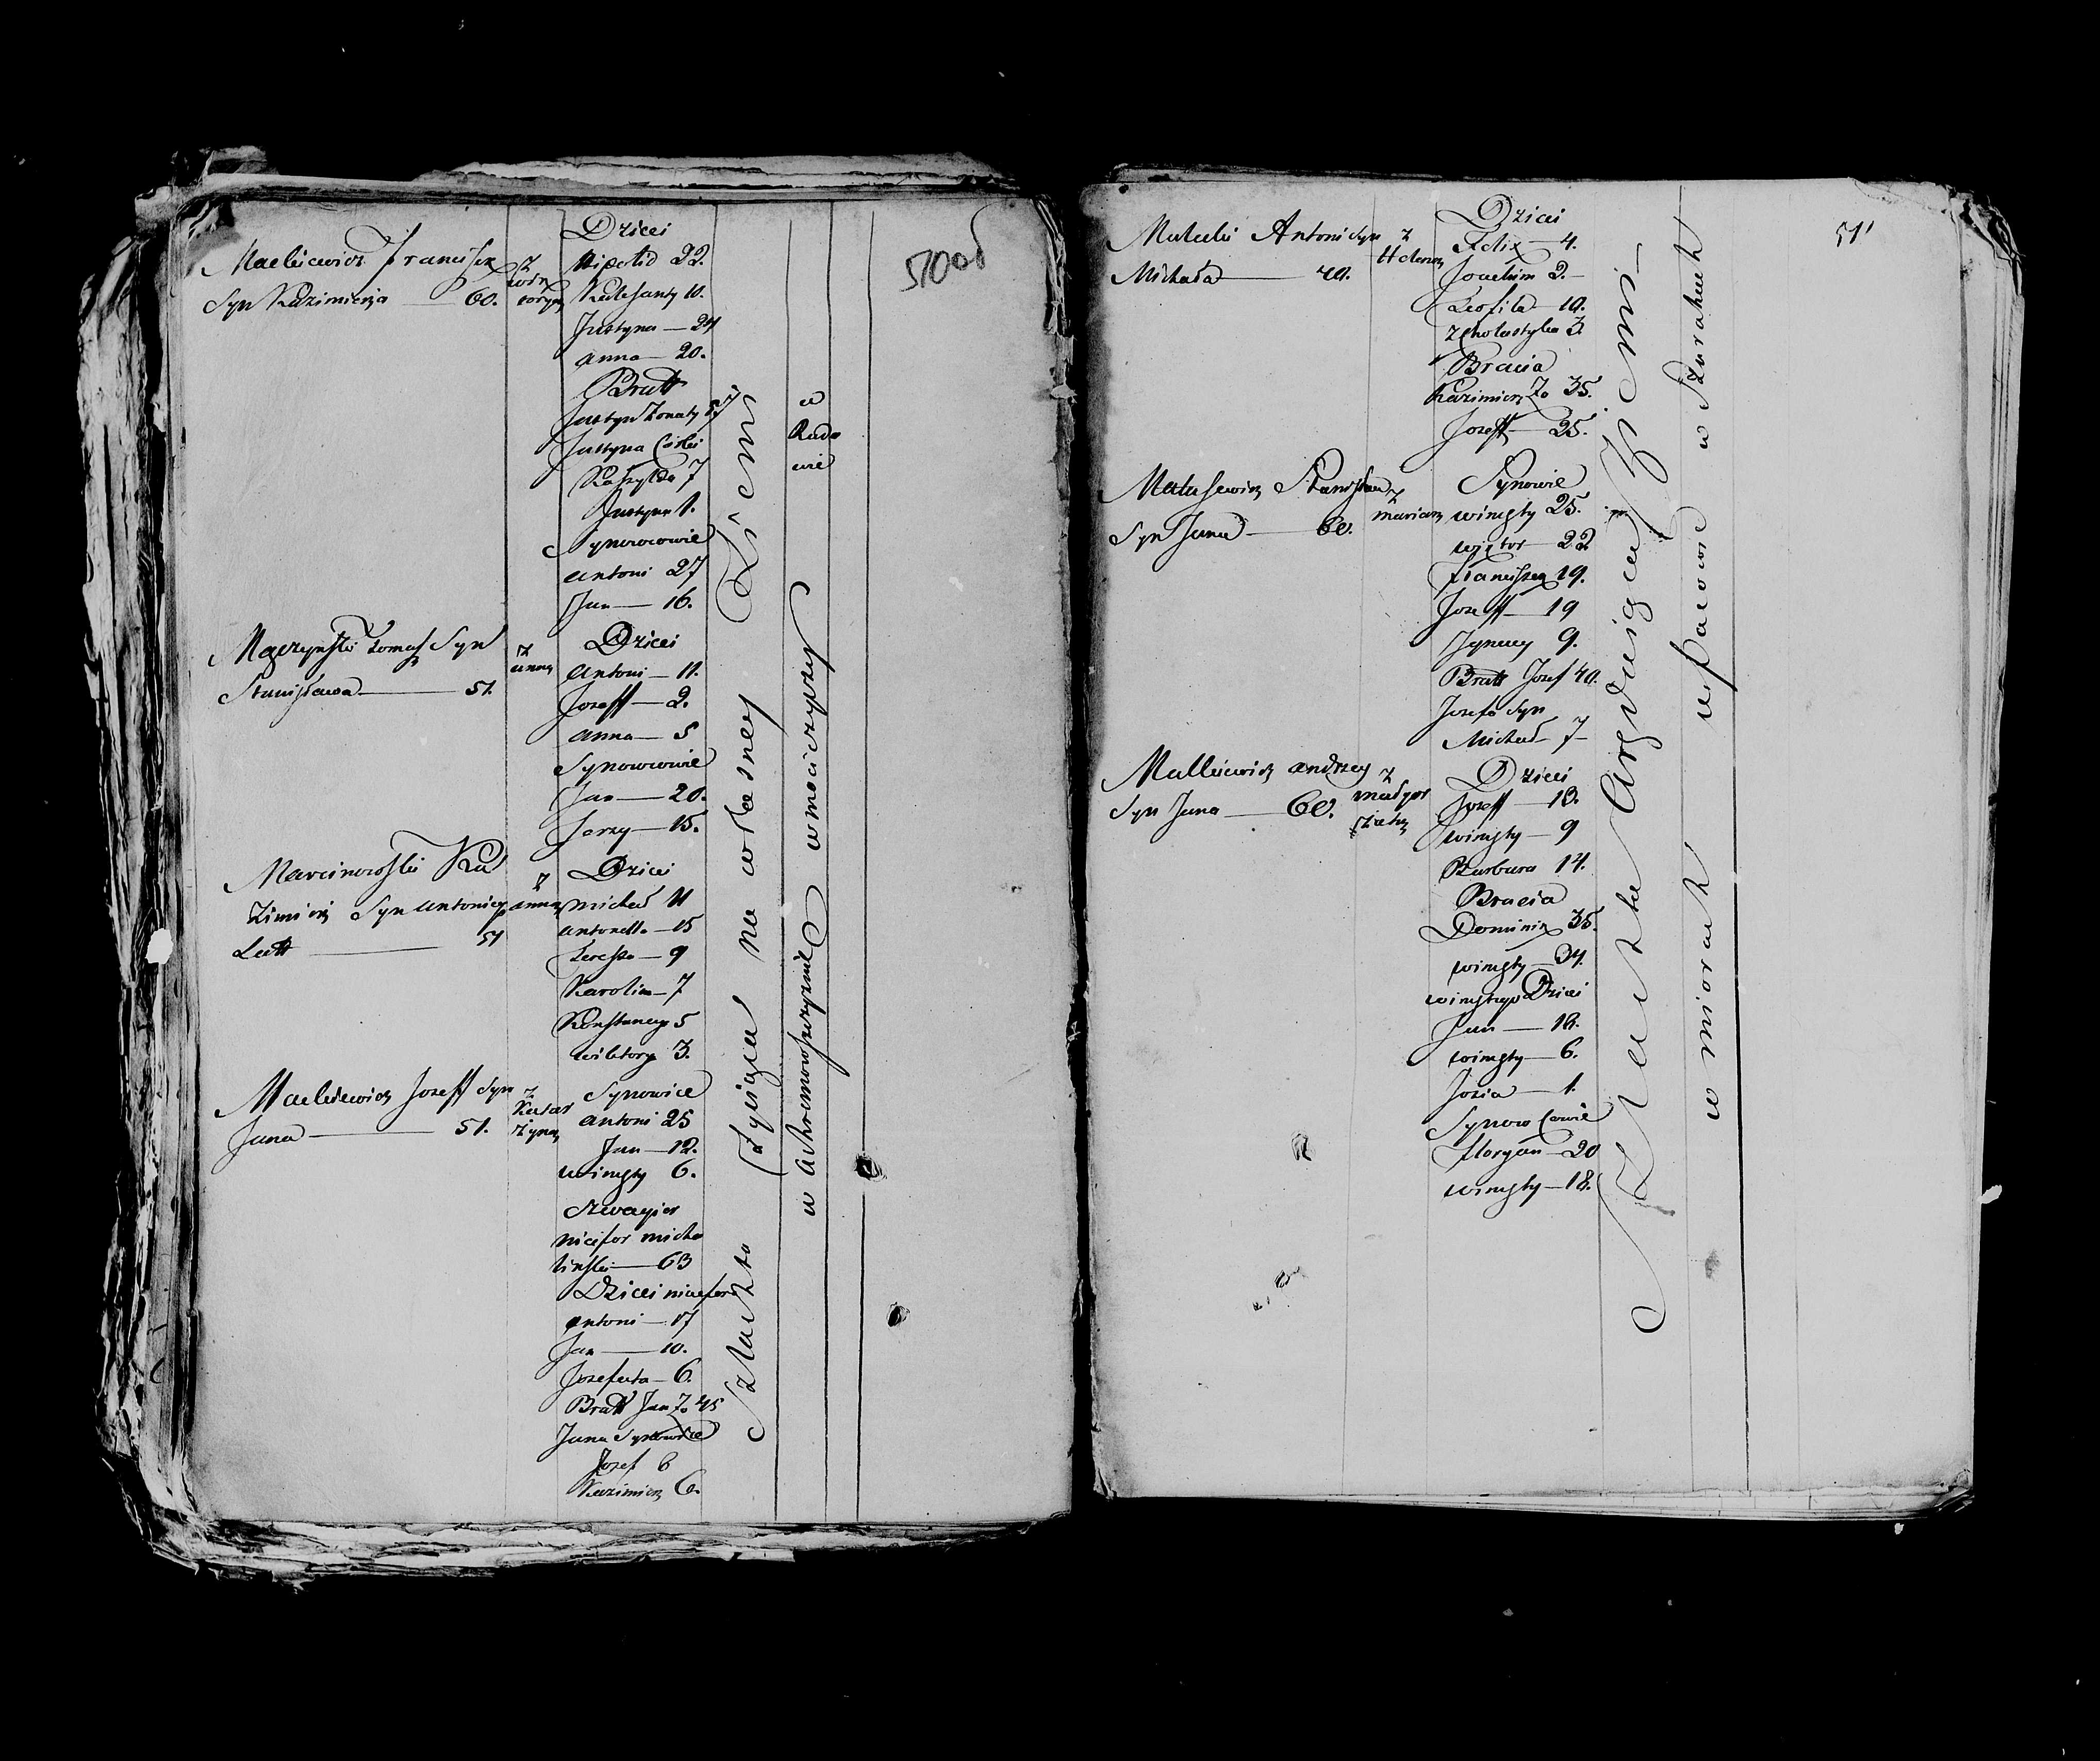 Mackiewicz Franciszek
Syn Kazimierza — 60.
z
Dzieci
Hipolid 22.
Kalesanty 10.
Justyna — 24
anna — 20.
Bratt
Justyn Żonaty 57
Justyna Córki
Kaszylda 7
Justyna 1.
Synowcowie
antoni 27
Jan — 16.
Mączyński Tomasz Syn
Stanisława — 51.
z
anną
Dzieci
antoni — 11.
Jozeff — 2.
anna — 5
Synowcowie
Jan — 20.
Jerzy — 15.
Marcinowski Ka
zimierz Syn antoniego
Latt — 51
z
anną
Dzieci
michał 11
antonella — 15
Teressa — 9
Karolina — 7
Konstancya 5
wiktorya 3.
Mackiewicz Jozeff Syn
Jana — 51.
z
Katar
zyną
Synowie
antoni 25
Jan — 12.
wincęty 6.
Szwagier
nicefor micha
liński — 63
Dzieci nicefora
antoni — 17
Jan — 10.
Jozefata — 6.
Bratt Jan Żo 45
Jana Synowie
Jozef 8
Kazimierz 6.
Szlachta żyiąca na własney Ziemi
w achremowszczyznie w mociczyzney
w
Rudo
wie
510od
Matucki Antoni Syn
Michała — 40.
z
Heleną
Dzieci
Felix — 4.
Joachim 2. —
Teofila — 10.
Scholastyka 3
Bracia
Kazimierz Żo 35.
Jozeff — 25.
Matusewicz Stanisław
Syn Jana — 60.
z
marianą
Synowie
wincęty 25.
wiktor — 22
Franciszek 19.
Jozeff — 19
Jgnacy 9.
Bratt Jozef 40.
Jozefa Syn
Michał — 7 —
Malkiewicz andrzey
Syn Jana — 60.
z
małgor
zatą
Dzieci
Jozeff — 18.
wincęty — 9
Barbara 14.
Bracia
Dominik 35.
wincęty — 34.
wincętego Dzieci
Jan — 18.
wincęty — 6.
Jozia — 1.
Synowcowie
Floryan — 20
wincęty — 18.
Szlachta Aręduiąca Ziemi —
w miorach w Szarahach
511